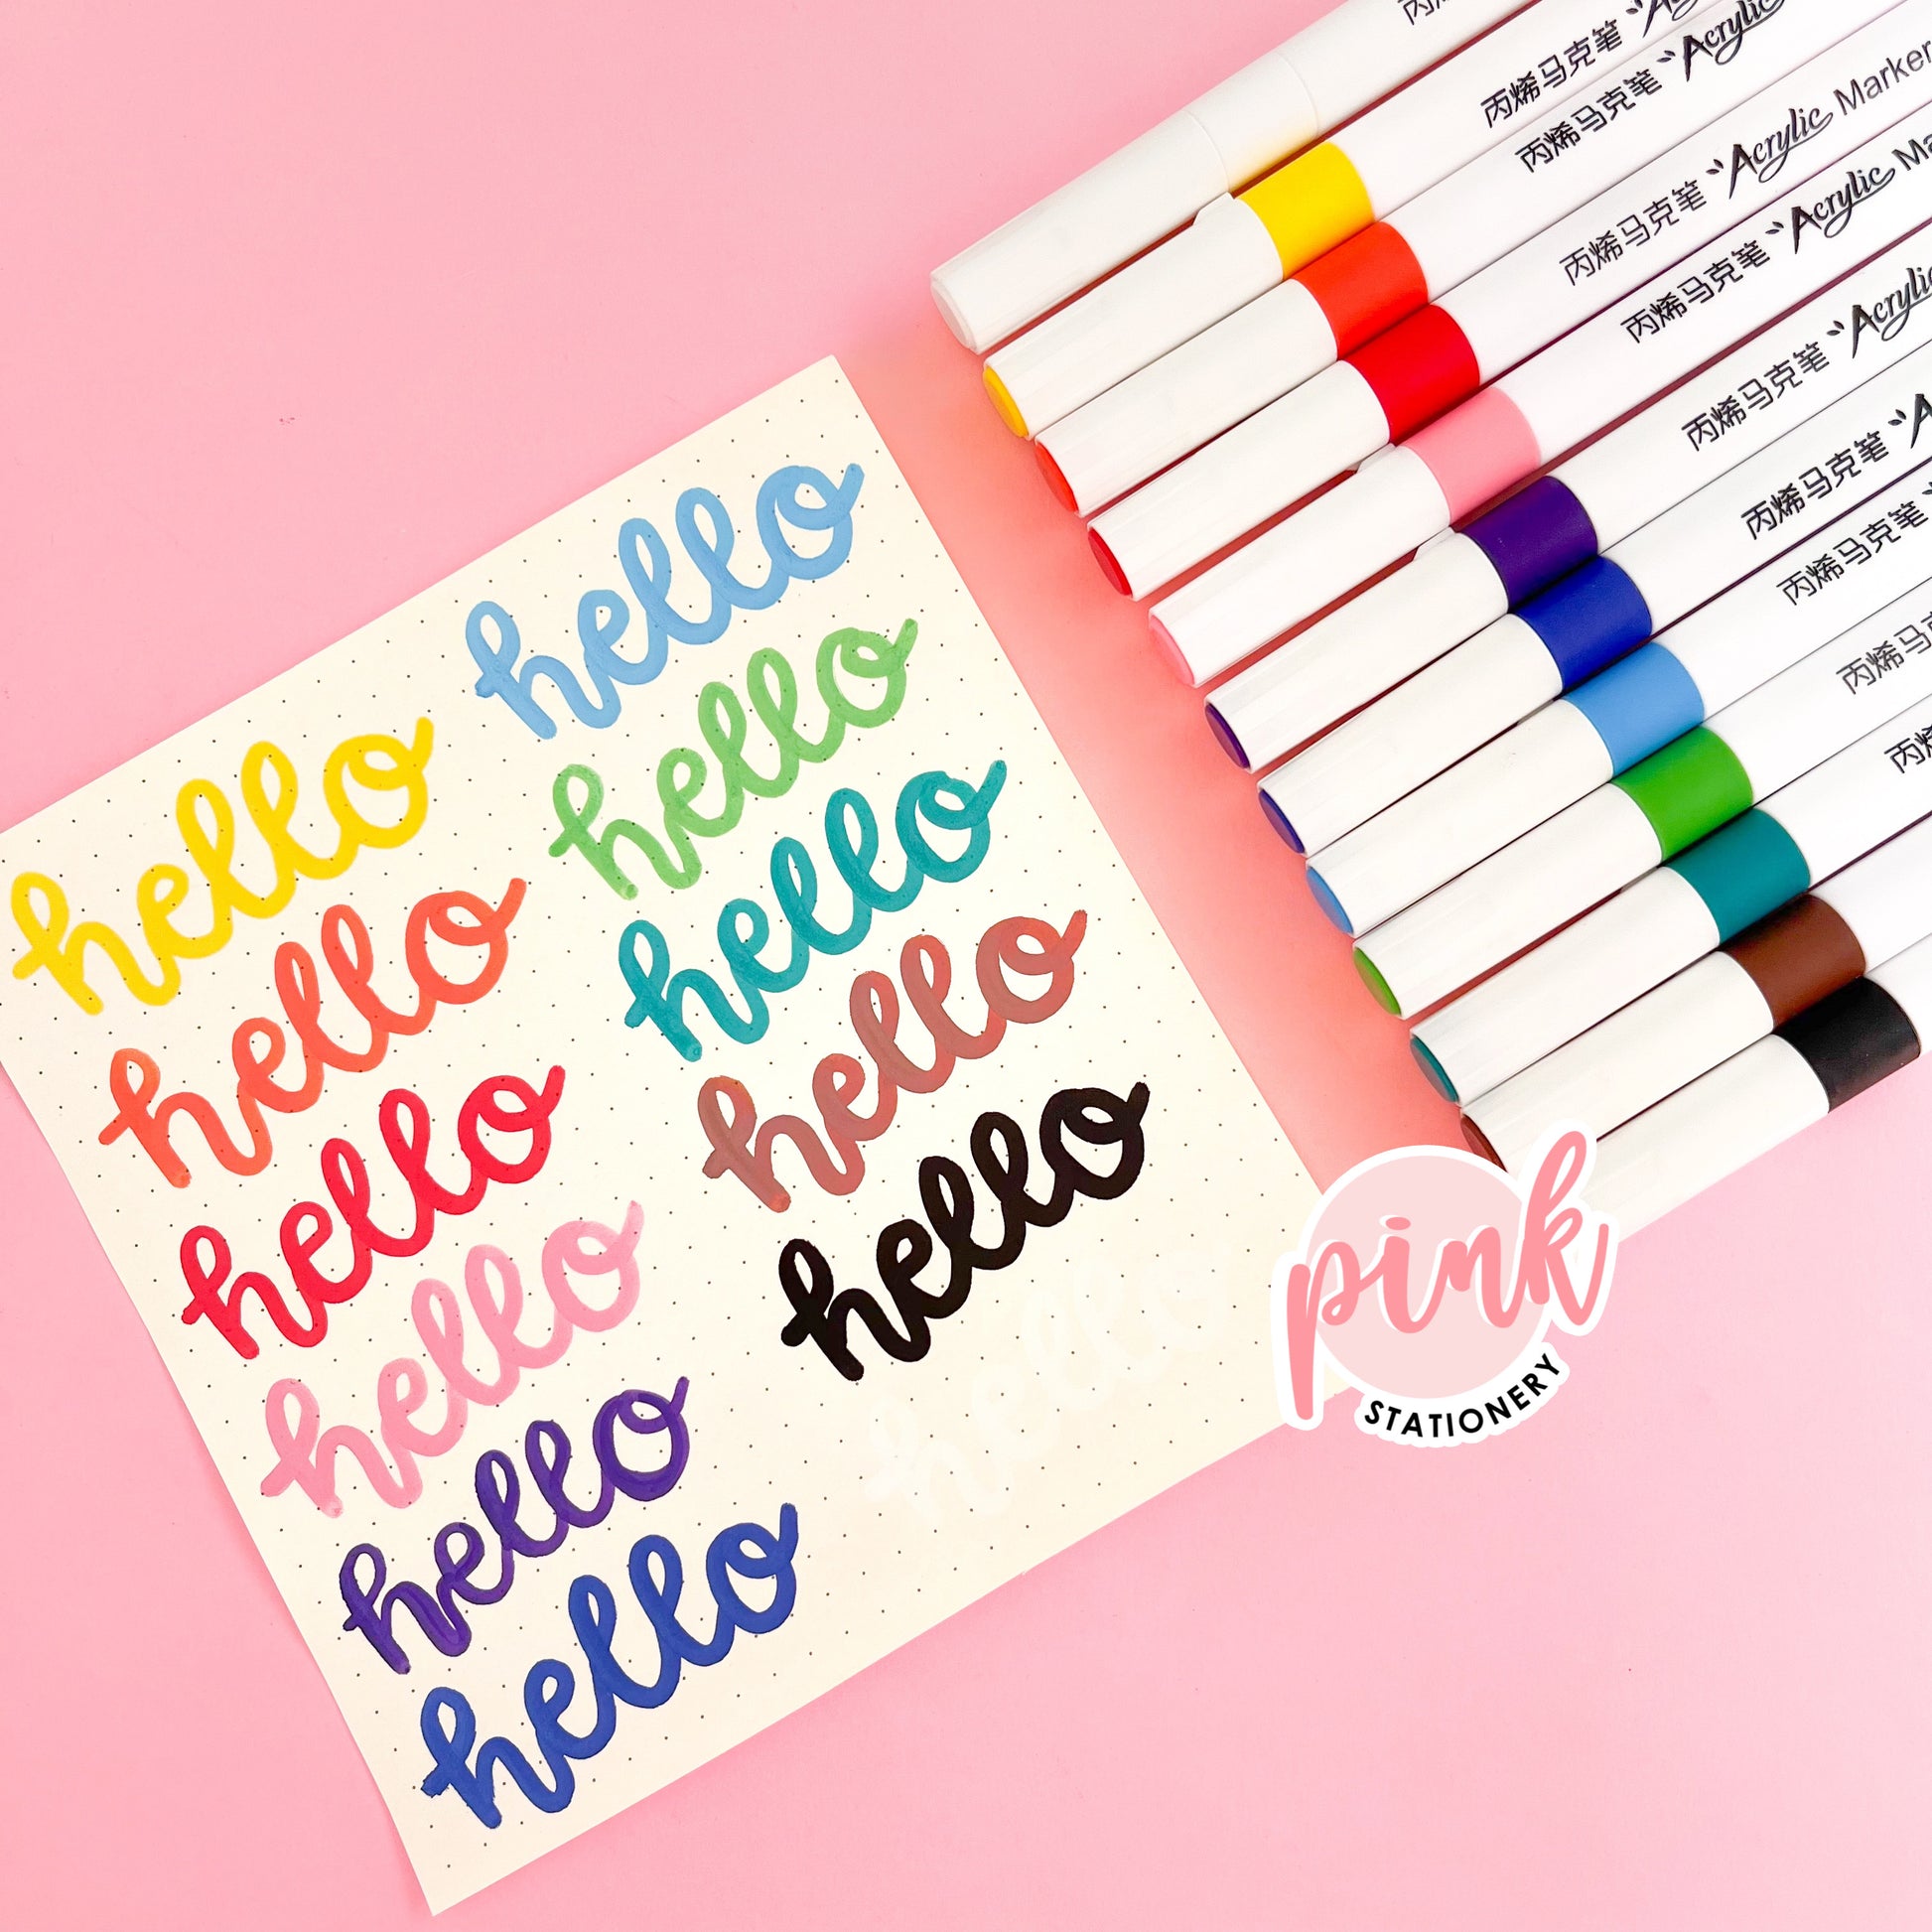 hello
hello
hello
hello
hello
hello
hello
hello
hello
hello
hello
hello
丙烯马克笔 Acrylic
丙烯马克笔 Acrylic
丙烯马克笔 Acrylic Marker
丙烯马克笔 Acrylic
丙烯马克笔 Acrylic
丙烯马克笔
丙烯马克笔
丙烯马克
丙烯
pink
STATIONERY